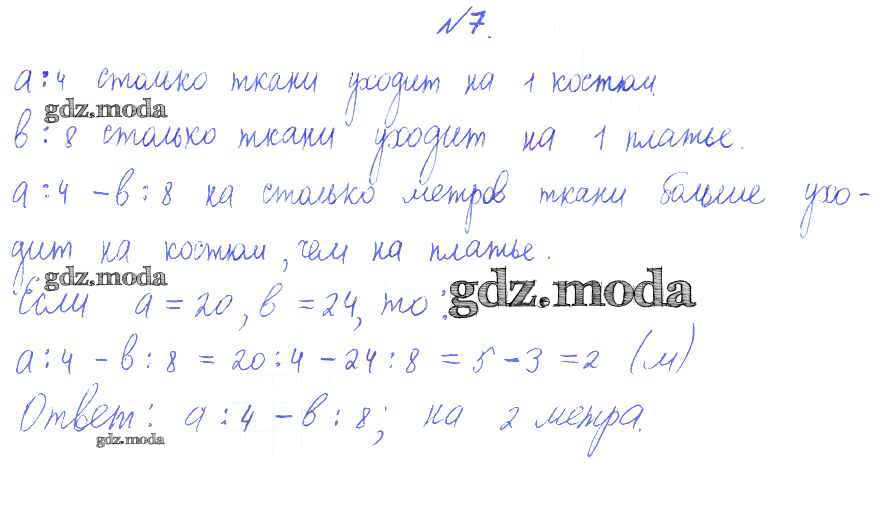 №7.
а:4 столько ткани уходит на 1 костюм.
gdz.moda
в:8 столько ткани уходит на 1 платье.
а:4 - в:8 на столько метров ткани больше ухо-
дит на костюм, чем на платье.
gdz.moda
Если а = 20, в = 24, то:
gdz.moda
а:4 - в:8 = 20:4 - 24:8 = 5 - 3 = 2 (м)
Ответ: а:4 - в:8; на 2 метра.
gdz.moda